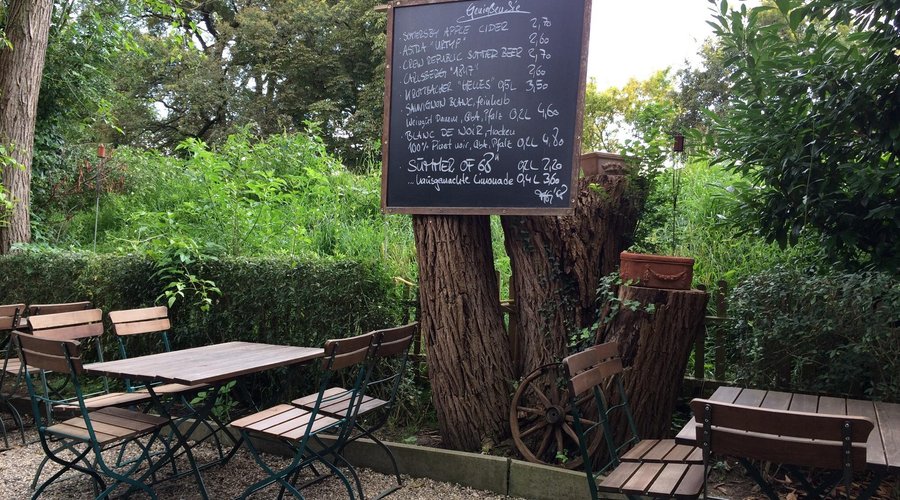 Genießen Sie
· SOMERSBY APPLE CIDER 2,70
· ASTRA "URTYP" 2,60
· CREW REPUBLIC SUMMER BEER 2,70
· CARLSBERG "1847" 2,60
· KROMBACHER "HELLES" 0,5L 3,50
· SAUVIGNON BLANC, feinherb
Weingut Pfalz 0,2L 4,60
· BLANC DE NOIR, trocken
100% Pinot noir, Pfalz 0,2L 4,80
SUMMER OF 68" 0,2L 2,20
... hausgemachte Limonade 0,4L 3,60